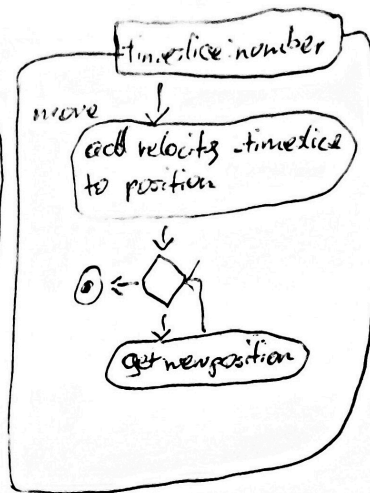 timeslice:number
move
add velocity_timeslice
to position
get new position